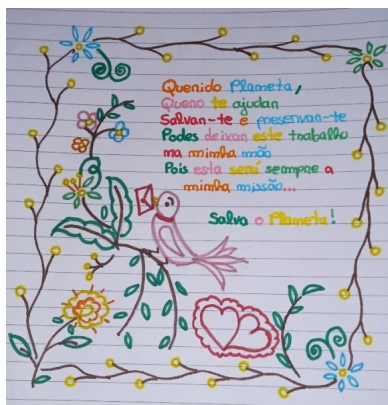 Querido Planeta,
Quero te ajudar
Salvar-te e preservar-te
Podes deixar este trabalho
na minha mão
Pois esta será sempre a
minha missão...
Salva o Planeta!